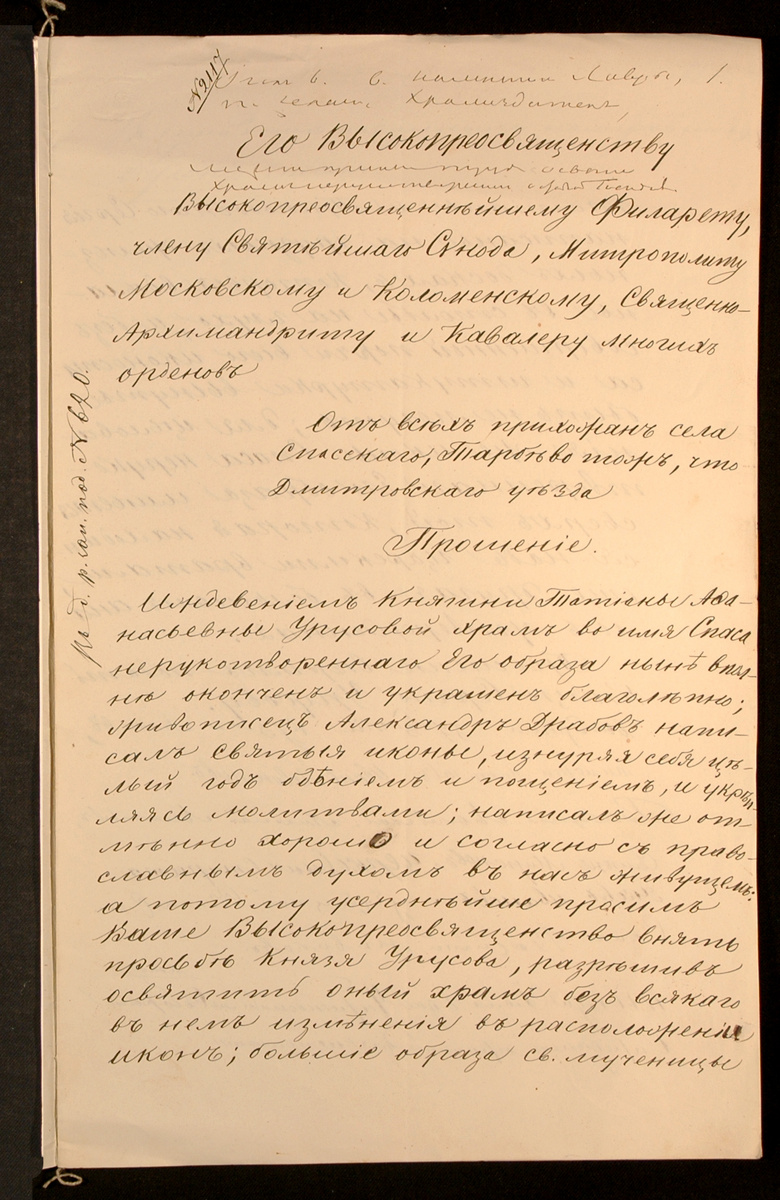 № 2117
Его Высокопреосвященству
Высокопреосвященнѣйшему Филарету,
члену Святѣйшаго Сѵнода, Митрополиту
Московскому и Коломенскому, Священно-
Архимандриту и Кавалеру многихъ
орденовъ
Отъ всѣхъ прихожанъ села
Спасскаго, Тарбѣво тожъ, что
Дмитровскаго уѣзда
Прошеніе.
Иждевеніемъ Княгини Татіаны Афа-
насьевны Урусовой храмъ во имя Спаса
нерукотвореннаго Его образа нынѣ впол-
нѣ оконченъ и украшенъ благолѣпно;
живописецъ Александръ Драбовъ напи-
салъ святыя иконы, изнуряя себя цѣ-
лый годъ бдѣніемъ и пощеніемъ, и укрѣп-
ляясь молитвами; написалъ же от-
мѣнно хорошо и согласно съ право-
славнымъ духомъ въ насъ живущемъ:
а потому усерднѣйше просимъ
Ваше Высокопреосвященство внять
просьбѣ Князя Урусова, разрѣшивъ
освятить оный храмъ безъ всякаго
въ немъ измѣненія въ расположеніи
иконъ; большіе образа св. мученицы